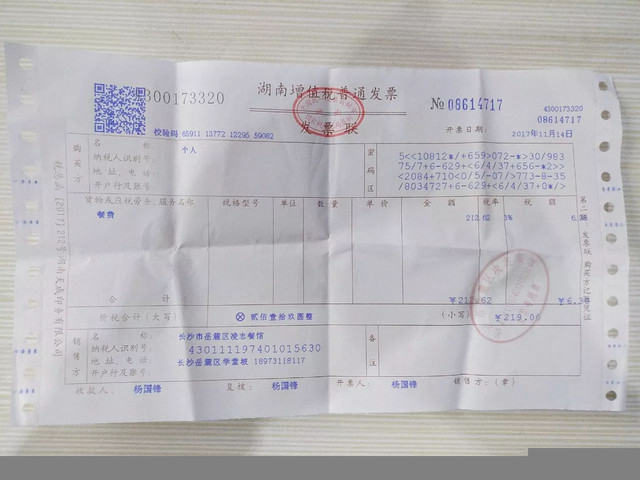 湖南增值税普通发票
4300173320
№ 08614717
4300173320
08614717
发票联
校验码 65911 13772 12295 59082
开票日期: 2017年11月14日
购买方
名 称: 个人
纳税人识别号:
地 址、电 话:
开户行及账号:
密码区
5<<10812*/+659>072-*>30/983
75/7+6-629+<6/4/37+656-*2>>
<2084+710<0/5/-07/>773-8-35
/8034727+6-629+<6/4/37+0*/>
货物或应税劳务、服务名称 规格型号 单位 数量 单价 金额 税率 税额
餐费 212.62 3% 6.38
合 计 ¥212.62 ¥6.38
价税合计(大写) ⊗ 贰佰壹拾玖圆整 (小写) ¥219.00
销售方
名 称: 长沙市岳麓区凌志餐馆
纳税人识别号: 430111197401015630
地 址、电 话: 长沙岳麓区学堂坡 18973118117
开户行及账号:
备注
收款人: 杨国锋 复核: 杨国锋 开票人: 杨国锋 销售方:(章)
第二联 发票联 购买方记账凭证